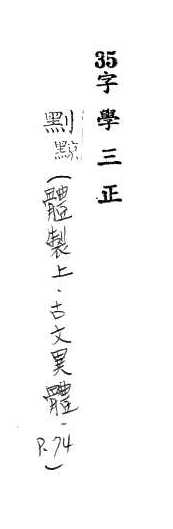 35字學三正
剠黥(體製上.古文異體.P.74)